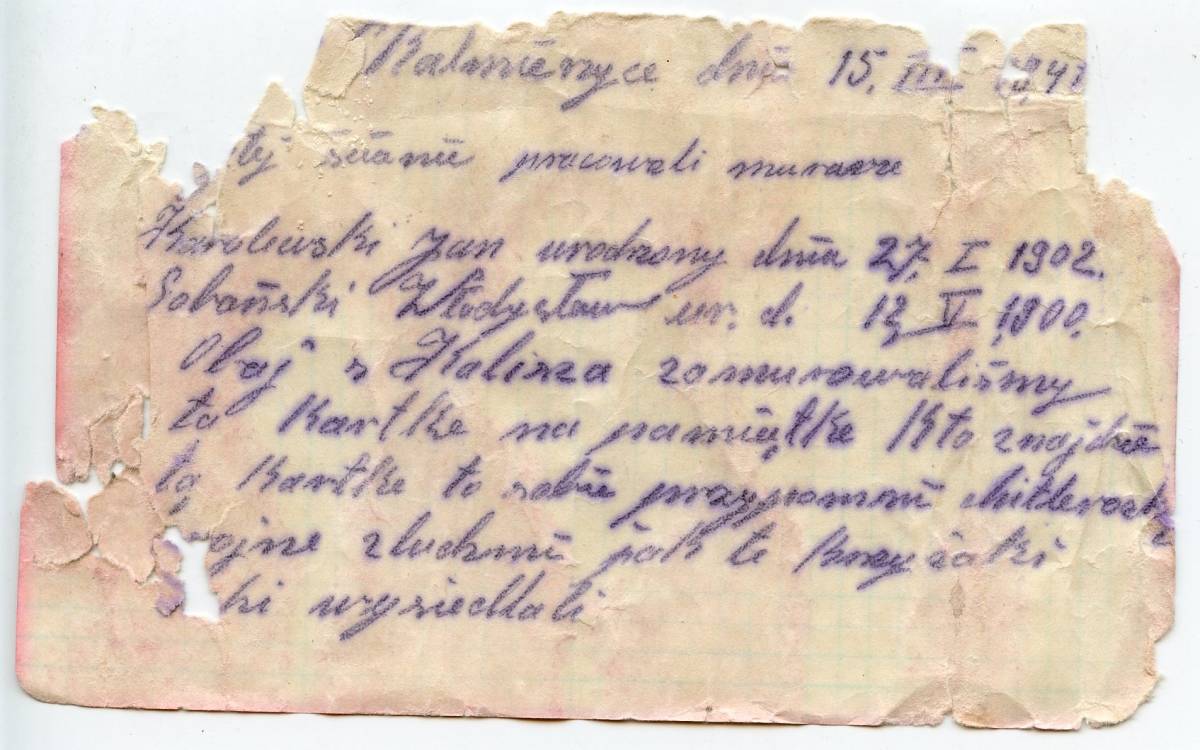 dnia 15. III 1941
tej ścianie pracowali murarze
Karolewski Jan urodzony dnia 27. I 1902.
Sobański Władysław ur. d. 12 V 1900.
Obaj z Kalisza zamurowaliśmy
tą kartke na pamiątke Kto znajdzie
tą kartke to sobie przypomni
zludzmi jak te krzyżaki
wysiedlali